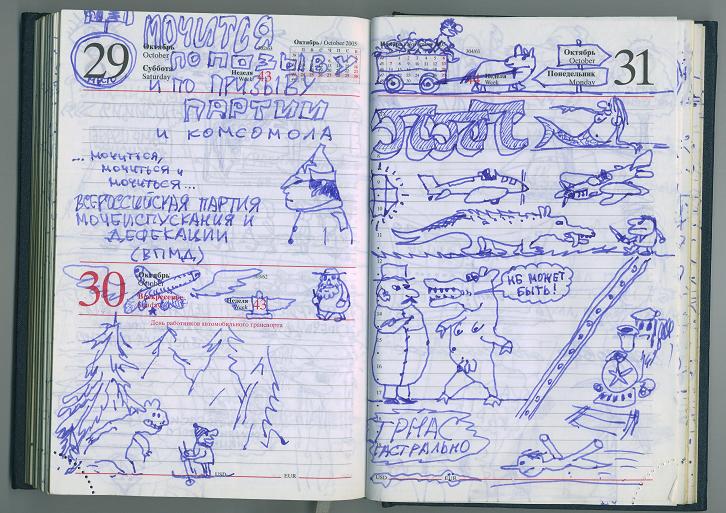 29
Октябрь
October
Суббота
Saturday
302/63
Неделя
Week 43
Октябрь / October 2005
МОЧИТСЯ
ПО ПОЗЫВУ
И ПО ПРИЗЫВУ
ПАРТИИ
И КОМСОМОЛА
... МОЧИТЬСЯ,
МОЧИТЬСЯ И
МОЧИТЬСЯ...
ВСЕРОССИЙСКАЯ ПАРТИЯ
МОЧЕИСПУСКАНИЯ И
ДЕФЕКАЦИИ
(ВПМД)
30
Октябрь
October
Воскресенье
Sunday
Неделя
Week 43
День работников автомобильного транспорта
USD
EUR
304/61
Неделя
Week
Октябрь
October
Понедельник
Monday
31
НЕ МОЖЕТ
БЫТЬ!
ГАСТРАЛЬНО
USD
EUR